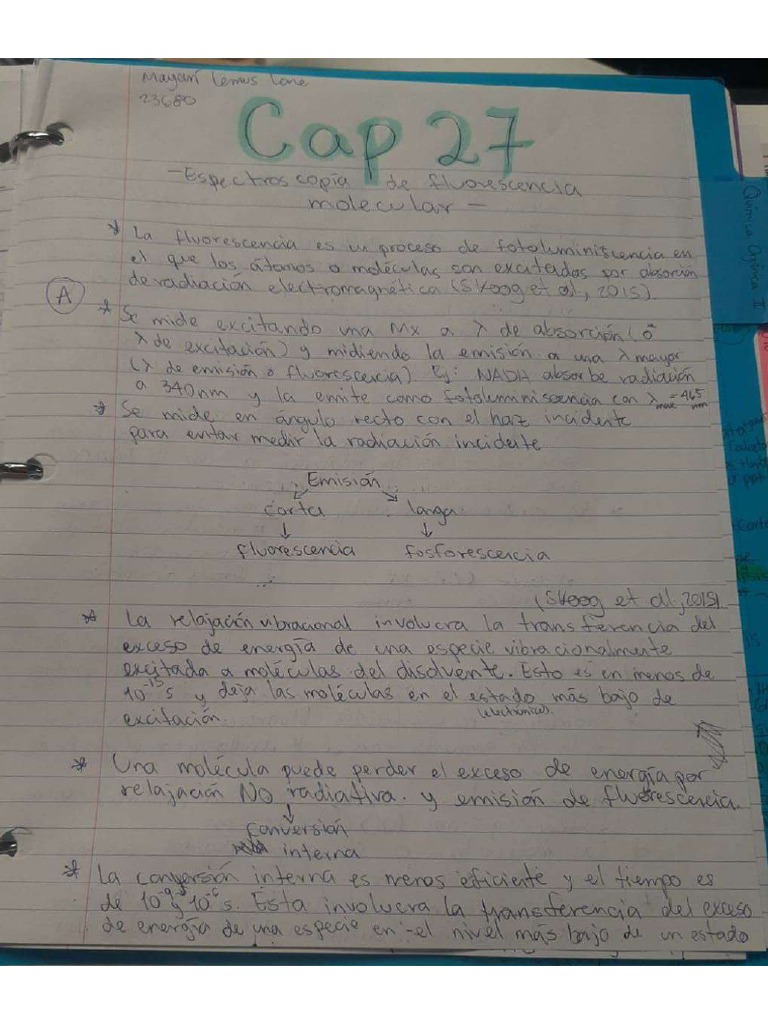 Mayarí Lemus Lone
23680
Cap 27
- Espectroscopía de fluorescencia
molecular -
* La fluorescencia es un proceso de fotoluminiscencia en
el que los átomos o moléculas son excitados por absorción
de radiación electromagnética (Skoog et al, 2015).
A
* Se mide excitando una Mx a λ de absorción (o
λ de excitación) y midiendo la emisión a una λ mayor
(λ de emisión o fluorescencia) Ej: NADH absorbe radiación
a 340nm y la emite como fotoluminiscencia con λ max = 465 nm
* Se mide en ángulo recto con el haz incidente
para evitar medir la radiación incidente
Emisión
corta larga
fluorescencia fosforescencia
(Skoog et al, 2015)
* La relajación vibracional involucra la transferencia del
exceso de energía de una especie vibracionalmente
excitada a moléculas del disolvente. Esto es en menos de
10⁻¹⁵ s y deja las moléculas en el estado más bajo de
(electrónico)
excitación.
* Una molécula puede perder el exceso de energía por
relajación NO radiativa. y emisión de fluorescencia.
conversión
interna
* La conversión interna es menos eficiente y el tiempo es
de 10⁻⁹ y 10⁻⁶ s. Esta involucra la transferencia del exceso
de energía de una especie en el nivel más bajo de un estado
Química Analítica II